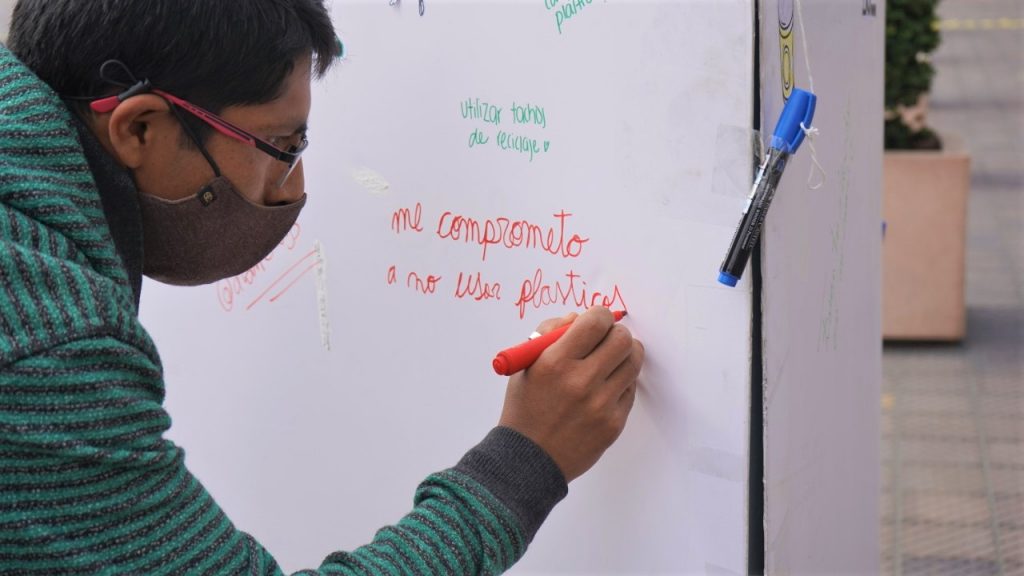 utilizar tachos
de reciclaje
me comprometo
a no usar plasticos